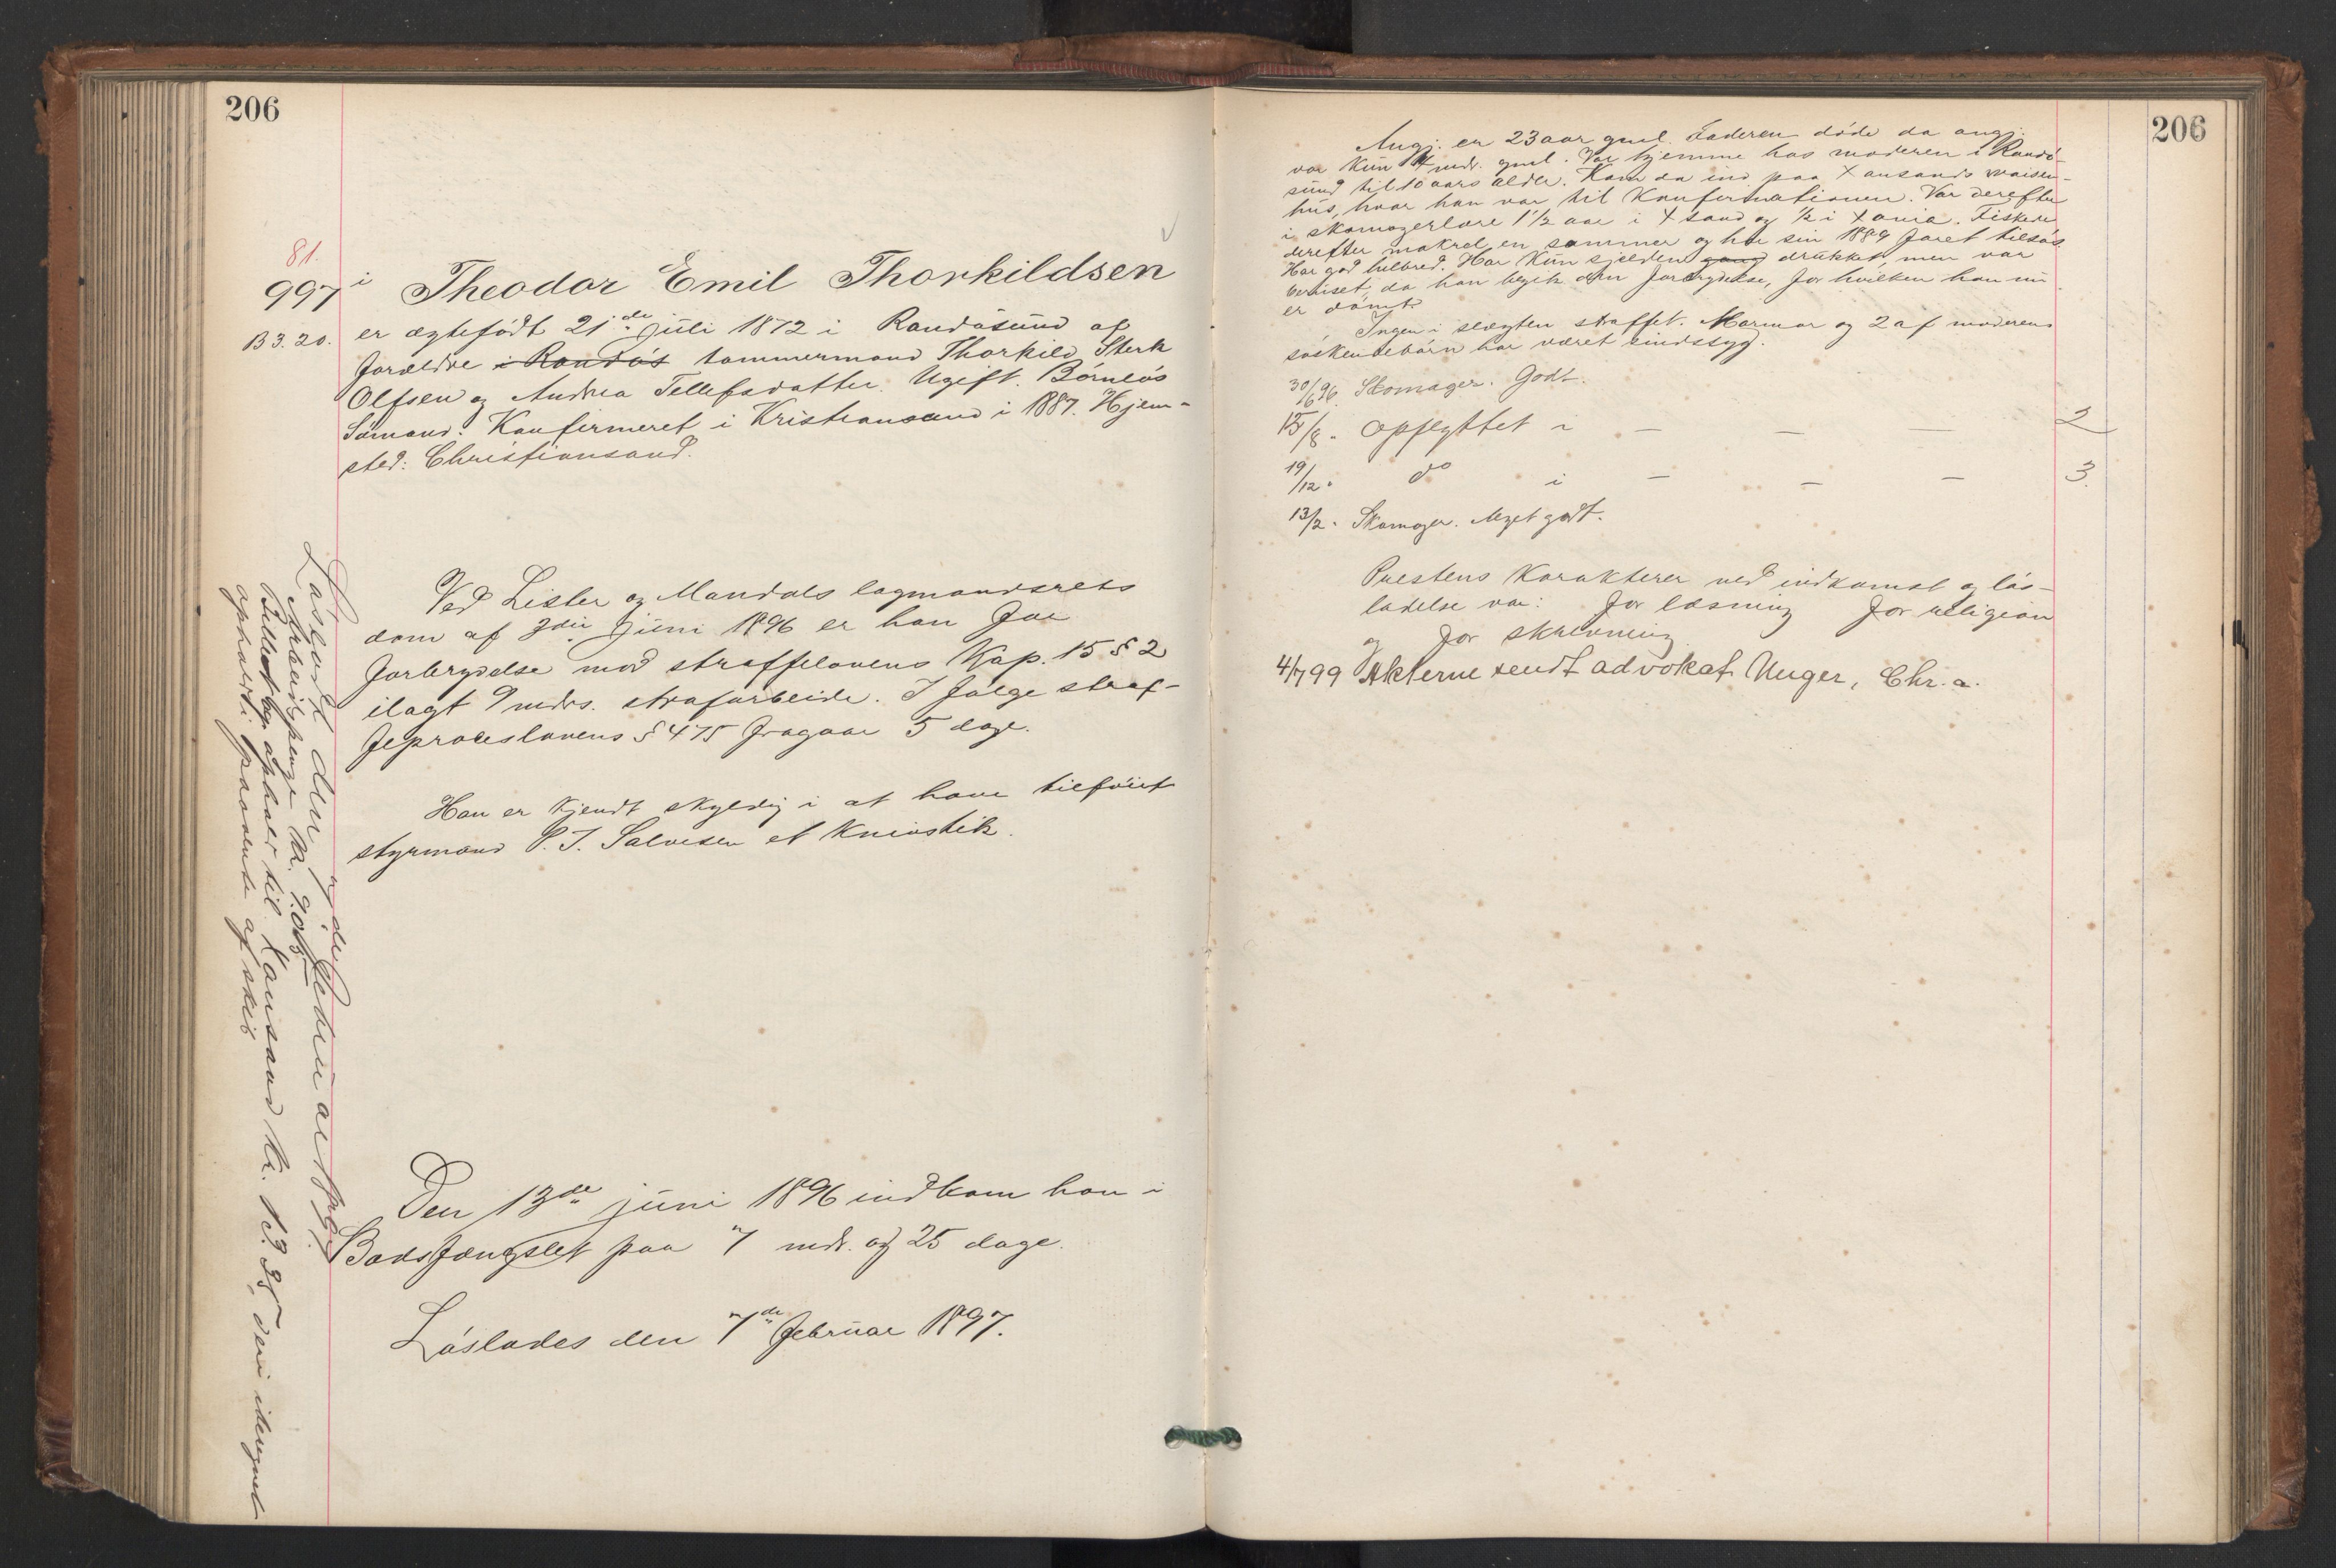 206
81.
997 i Theodor Emil Thorkildsen
B 3. 20. er ægtefødt 21de juli 1872 i Randøsund af
forældre i Randøs tømmermand Thorkild Sterk
Olfsen og Andrea Tellefsdatter. Ugift. Børnløs
Sømand. Konfirmeret i Kristiansand i 1887. Hjem-
sted: Christiansand.
Ved Lister og Mandals lagmandsrets
dom af 3die juni 1896 er han for
forbrydelse mod straffelovens Kap. 15 § 2
ilagt 9 mdrs. strafarbeide. I følge straf-
feproceslovens § 475 fragaar 5 dage.
Han er kjendt skyldig i at have tilføiet
styrmand P. J. Salvesen et knivstik.
Den 13de juni 1896 indkom han i
Bodsfængslet paa 7 mdr. og 25 dage.
Løslades den 7de februar 1897.
Løsladt den 7de februar 1897.
Arbeidspenge kr. 9.03
Billet og ophold til Xansand kr. 13.35, deri iberegnet
ophold i paavente af skib
206
Angj. er 23 aar gml. Faderen døde da angj.
var kun 4 mdr. gml. Var hjemme hos moderen i Randø-
sund til 10 aars alder. Kom da ind paa Xansands vaisen-
hus, hvor han var til konfirmationen. Var derefter
i skomagerlære 1 1/2 aar i Xsand og 1/2 i Xania. Fiskede
derefter makrel en sommer og har sin 1889 faret tilsøs.
Har god helbred. Har kun sjelden gang drukket, men var
beruset, da han begik den forbrydelse, for hvilken han nu
er dømt.
Ingen i slægten straffet. Mormor og 2 af moderens
søskendebørn har været sindssyg.
30/6 96. Skomager. Godt.
15/8. Opflyttet i — — — 2
19/12. do i — — — 3.
13/2. Skomager. Meget godt.
Prestens karakterer ved indkomst og løs-
ladelse var: for læsning for religion
og for skrivning
4/7 99 Akterne sendt advokat Unger, Chr.a.